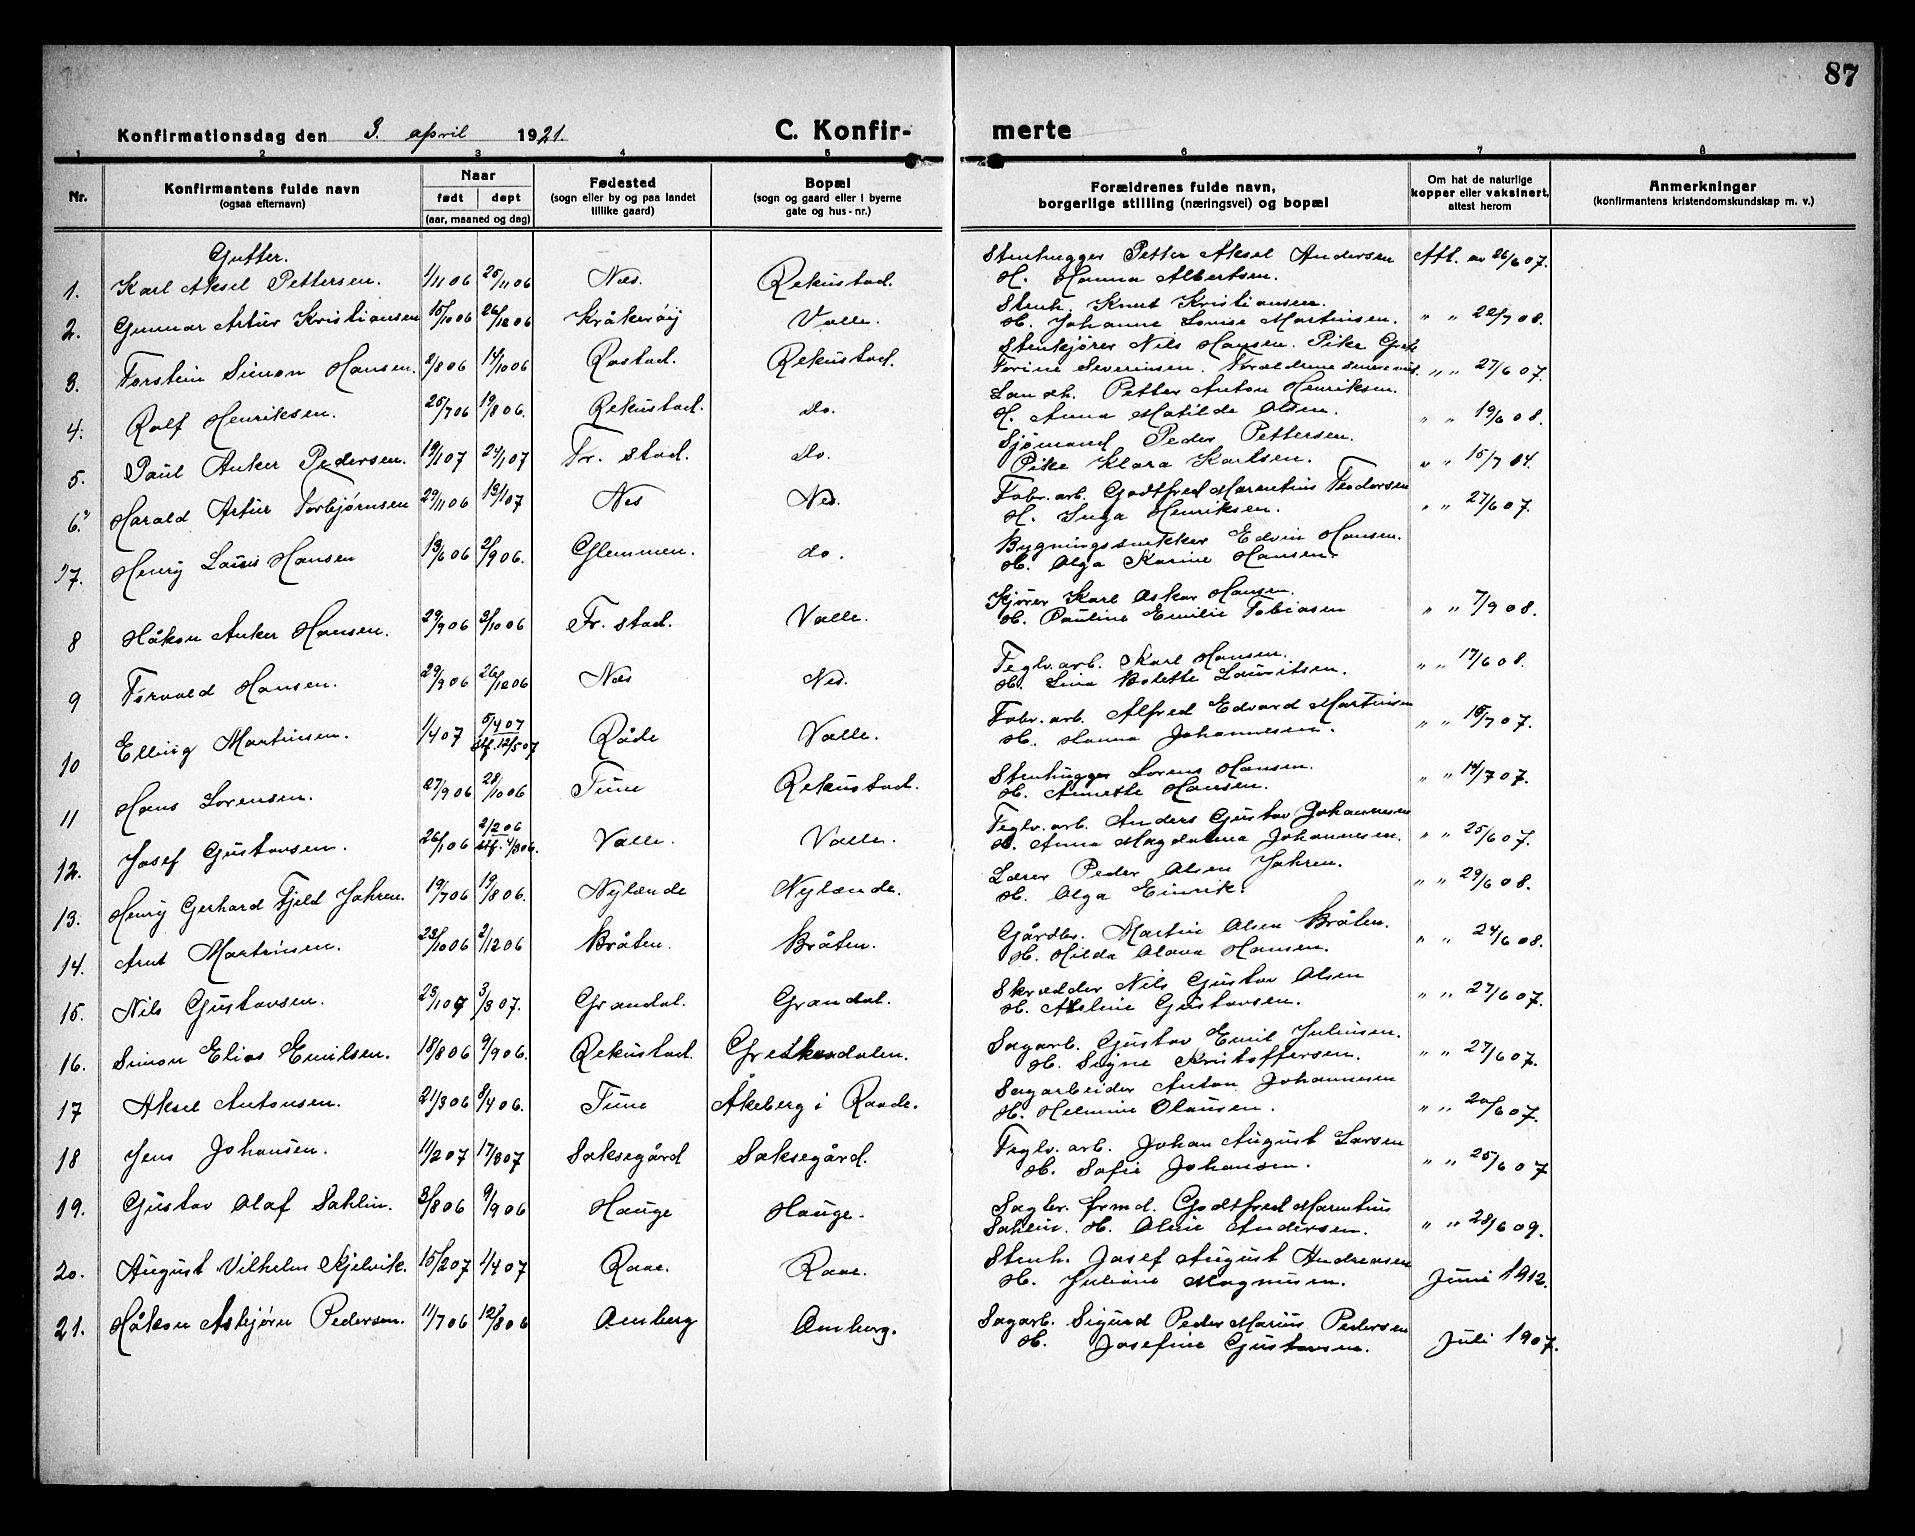 87
Konfirmationsdag den 3. april 1921.
C. Konfir-
merte
1 2 3 4 5 6 7 8
Nr.
Konfirmantens fulde navn
(ogsaa efternavn)
Naar
født døpt
(aar, maaned og dag)
Fødested
(sogn eller by og paa landet
tillike gaard)
Bopæl
(sogn og gaard eller i byerne
gate og hus-nr.)
Forældrenes fulde navn,
borgerlige stilling (næringsvei) og bopæl
Om hat de naturlige
kopper eller vaksinert,
attest herom
Anmerkninger
(konfirmantens kristendomskundskap m. v.)
Gutter.
1. Karl Aksel Pettersen. 1/11 06 25/11 06 Næs. Rekustad. Stenhugger Petter Aksel Andersen Att. av 26/6 07.
H. Hanna Albertsen.
2. Gunnar Artur Kristiansen 15/10 06 26/12 06 Kråkerøy Valle. Stenh. Knut Kristiansen.
H. Johanne Lovise Martinsen. " " 22/7 08.
3. Torstein Simon Hansen. 2/8 06 14/10 06 Rostad. Rekustad. Stenkjører Nils Hansen. Pike
Torine Severinsen. Forældrene senere " " 27/6 07.
4. Rolf Henriksen. 25/7 06 19/8 06. Rekustad. do. Petter Anton Henriksen.
H. Anna Matilde Olsen. " " 19/6 08.
5. Paul Anker Pedersen. 19/1 07 24/1 07 Fr. stad. do. Sjømand Peder Pettersen.
Pike Klara Karlsen. " " 15/7 04.
6. Harald Artur Torbjørnsen 29/11 06 13/1 07 Nes Nes. Fabr. arb. Godtfred Marentius Teodorsen
H. Inga Henriksen. " " 27/6 07.
7. Henry Louis Hansen 13/6 06 2/9 06. Glemmen. do. Bygningssnekker Edvin Hansen.
H. Olga Karine Hansen.
8 Håkon Anker Hansen. 29/9 06 3/10 06 Fr. stad. Valle. Kjører Karl Oskar Hansen.
H. Pauline Emilie Tobiasen " " 7/9 08.
9 Torvald Hansen. 29/9 06 26/12 06 Næs Nes. Teglv. arb. Karl Hansen.
H. Lina Bolette Lauritsen. " " 17/6 08.
10 Elling Martinsen. 1/4 07 5/4 07
stf. 12/5 07 Råde Valle. Fabr. arb. Alfred Edvard Martinsen
H. Hanna Johannesen. " " 15/7 07.
11 Hans Lorensen. 27/9 06 28/10 06 Tune Rekustad. Stenhugger Lorens Hansen.
H. Annette Hansen. " " 14/7 07.
12. Josef Gustavsen. 26/1 06 2/2 06
stf. 4/3 06. Valle. Valle. Teglv. arb. Anders Gustav Johannesen
H. Anna Magdalena Johannesen. " " 25/6 07.
13. Henry Gerhard Fjeld Jahren. 19/7 06 19/8 06. Nylænde Nylænde. Lærer Peder Olsen Jahren.
H. Olga Einrik. " " 29/6 08.
14. Arnt Martinsen. 23/10 06 2/12 06 Bråten. Bråten. Gårdbr. Martin Olsen Bråten.
H. Hilda Olava Hansen. " " 24/6 08.
15. Nils Gustavsen. 23/1 07 3/3 07. Grandal. Grandal. Skrædder Nils Gustav Olsen
H. Gustavsen. " " 27/6 07.
16. Simon Elias Emilsen. 18/8 06 9/9 06. Rekustad. Sagarb. Gustav Emil Julinsen.
H. Signe Kristoffersen. " " 27/6 07.
17 Aksel Antonsen. 21/3 06 8/4 06. Tune Åkeberg i Raade. Sagarbeider Anton Johannesen
H. Helmine Olausen. " " 20/6 07.
18 Jens Johansen. 11/2 07 17/3 07 Saksegård Saksegård. Teglv. arb. Johan August Larsen
H. Sofie Johansen. " " 25/6 07
19. Gustav Olaf Sahlin. 3/8 06 9/9 06 Hauge Hauge. Sagbr. formd. Godtfred Marentius
Sahlin. H. Oline Andersen. " " 28/6 09.
20. August Vilhelm Kjelvik. 15/2 07 1/4 07 Raae. Raae. Stenh. Josef August Andreasen
H. Juliane Magnusen. Juni 1912.
21. Håkon Asbjørn Pedersen. 11/7 06 12/8 06 Amberg Amberg. Sagarb. Sigurd Peder Marius Pedersen
H. Josefine Gustavsen. Juli 1907.